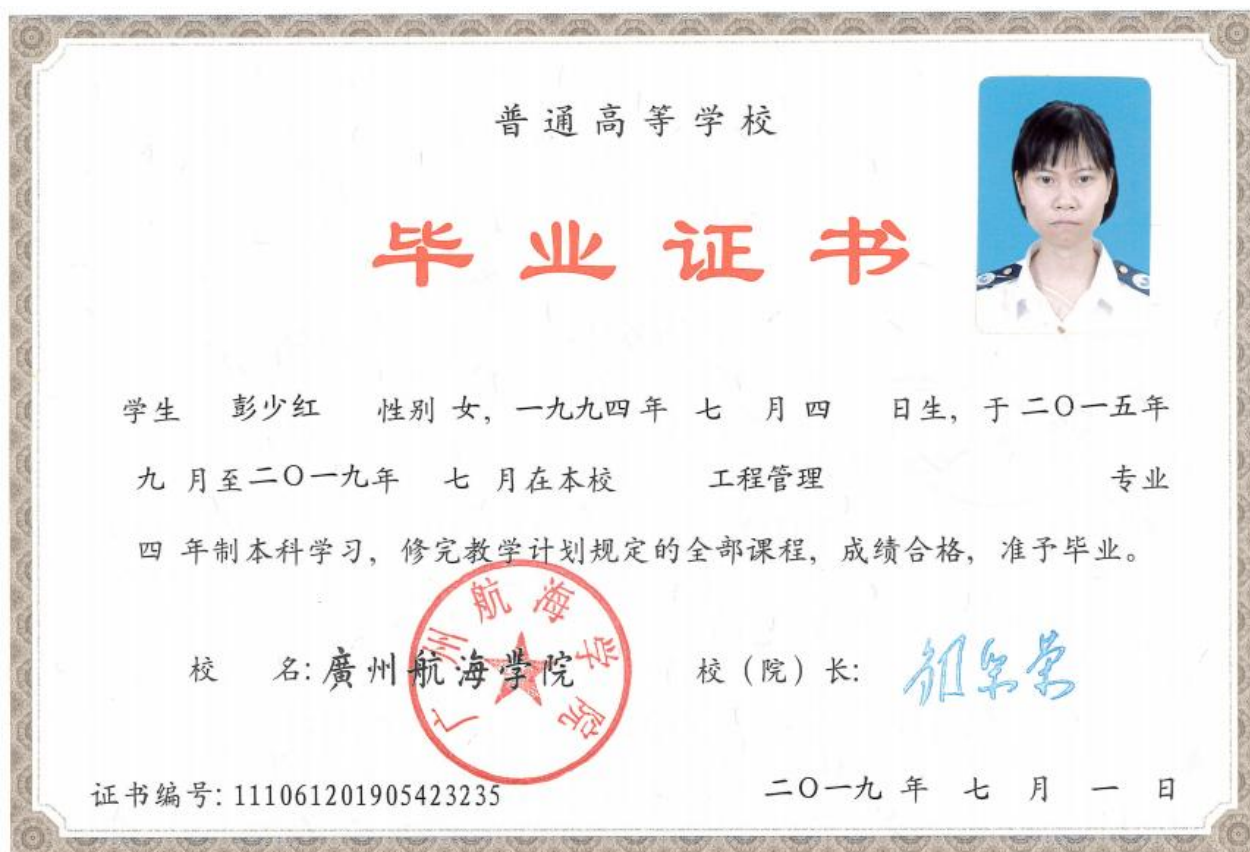 普通高等学校
毕业证书
学生 彭少红 性别 女，一九九四年 七 月 四 日生，于二〇一五年
九 月至二〇一九年 七 月在本校 工程管理 专业
四 年制本科学习，修完教学计划规定的全部课程，成绩合格，准予毕业。
校 名：廣州航海學院 校（院）长：
广州航海学院
证书编号：111061201905423235 二〇一九 年 七 月 一 日